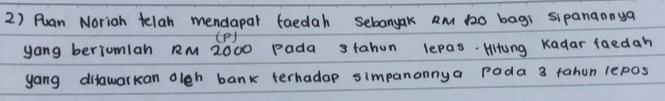 2) Puan Noriah telah mendapat faedah sebanyak RM 120 bagi sipanannya
yang berjumlah RM 2000 (P) pada 3 tahun lepas. Hitung kadar faedah
yang ditawarkan oleh bank terhadap simpanannya pada 3 tahun lepas